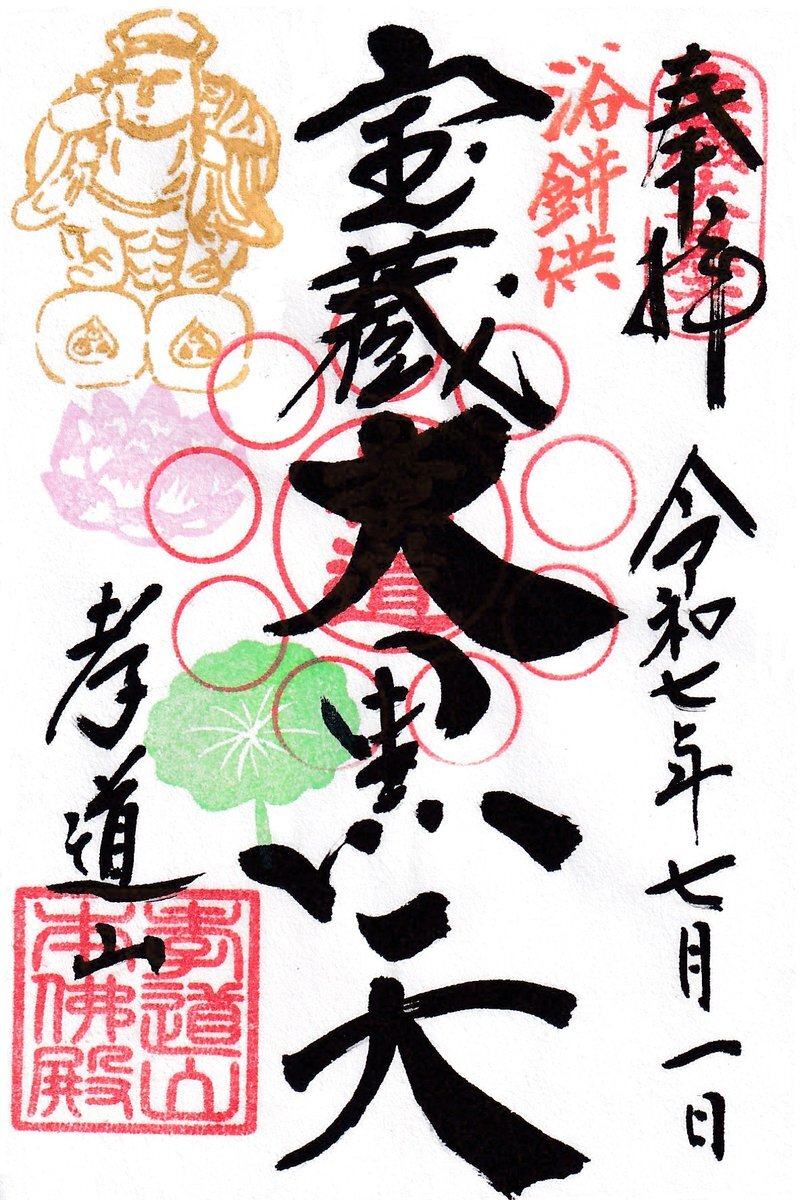 奉拝
令和七年七月一日
浴餅供
宝蔵大黒天
道
孝道山
孝道山
本佛殿